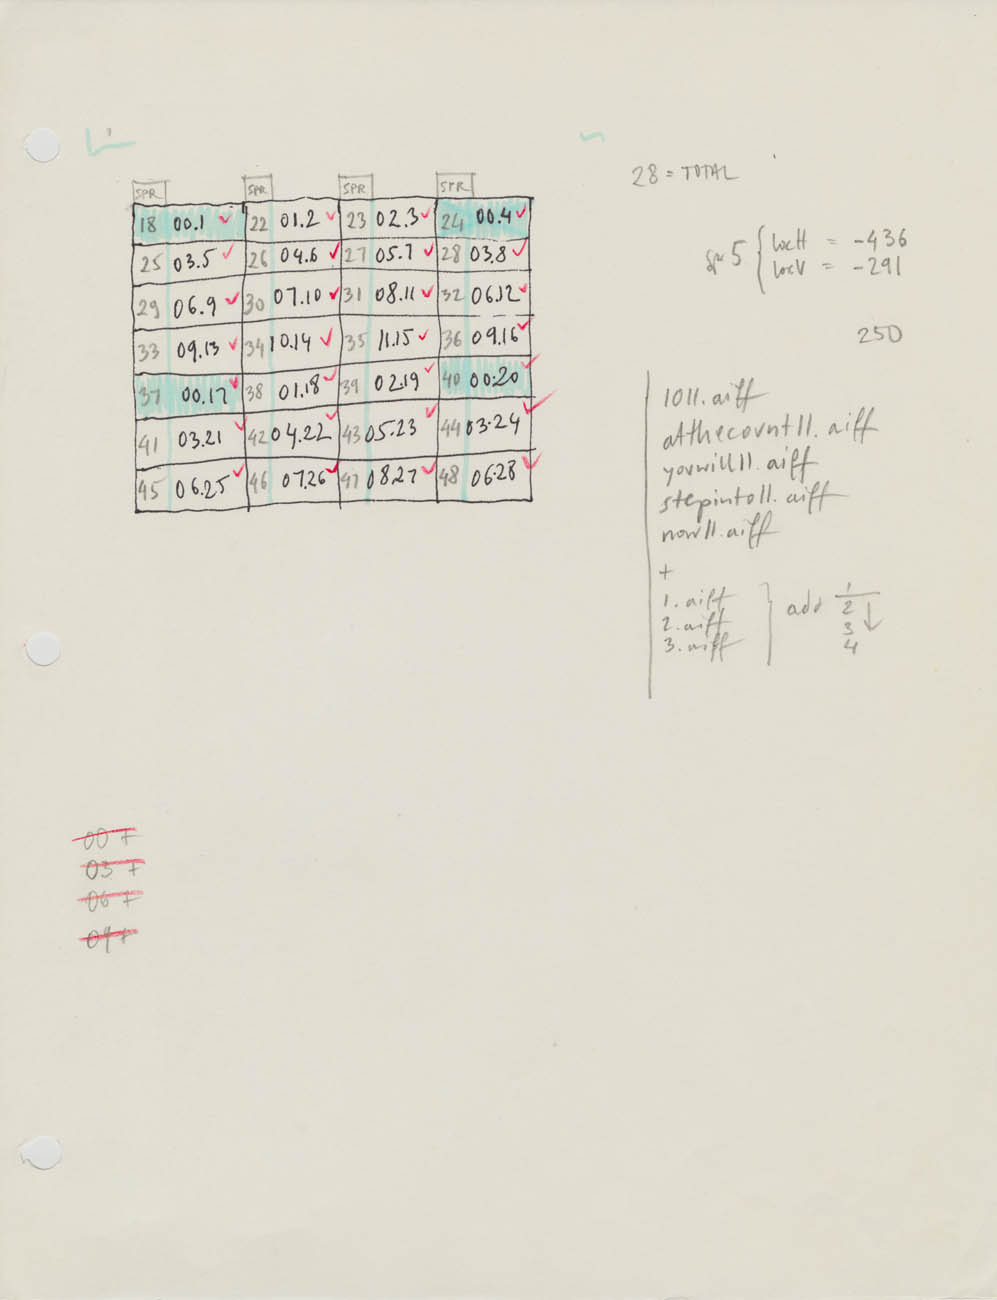 SPR SPR SPR SPR
18 00.1 22 01.2 23 02.3 24 00.4
25 03.5 26 04.6 27 05.7 28 03.8
29 06.9 30 07.10 31 08.11 32 06.12
33 09.13 34 10.14 35 11.15 36 09.16
37 00.17 38 01.18 39 02.19 40 00.20
41 03.21 42 04.22 43 05.23 44 03.24
45 06.25 46 07.26 47 08.27 48 06.28
28 = TOTAL
5 { locH = -436
locV = -291
250
1011.aiff
atthecount11.aiff
youwill11.aiff
stepinto11.aiff
now11.aiff
+
1.aiff
2.aiff
3.aiff
} add 1
2
3
4
00 +
03 +
06 +
09 +